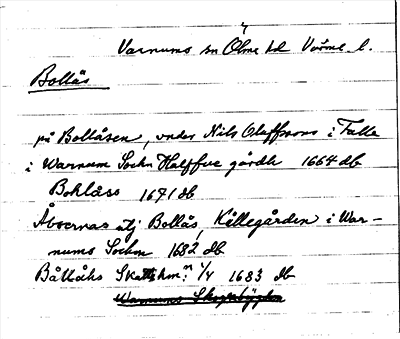 Varnums sn Ölme hd Värml. l.
Bollås
på Bollåsen, under Nils Olaffsons i Talle
i Warnum Sochn Halffue gårdh 1664 db
Bohlåss 1671 db
Åboernas utj Bollås, Källegården i War-
nums Sochn 1682 db
Bållåhs Skatthm:n 1/4 1683 db
Warnums Skogsbygden